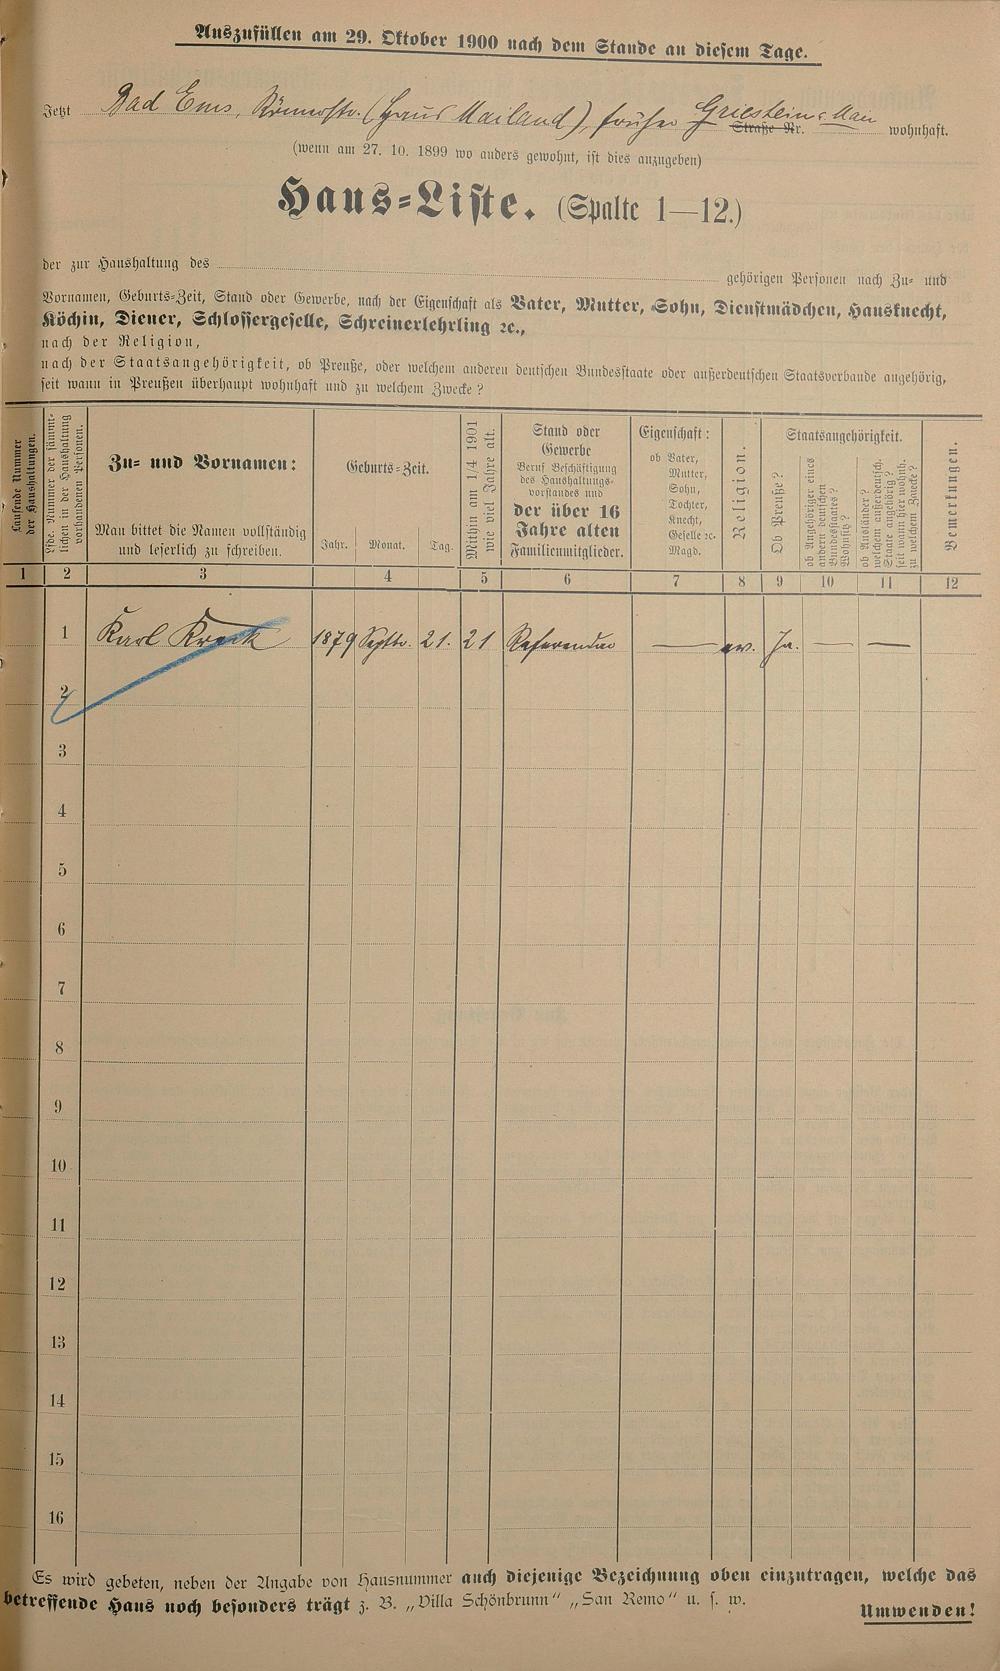 Auszufüllen am 29. Oktober 1900 nach dem Stande an diesem Tage.
Jetzt Bad Ems, Römerstr. (Haus Mailand), früher
Straße Nr. wohnhaft.
(wenn am 27. 10. 1899 wo anders gewohnt, ist dies anzugeben)
Haus-Liste. (Spalte 1—12.)
der zur Haushaltung des gehörigen Personen nach Zu- und
Vornamen, Geburts-Zeit, Stand oder Gewerbe, nach der Eigenschaft als Vater, Mutter, Sohn, Dienstmädchen, Hausknecht,
Köchin, Diener, Schlossergeselle, Schreinerlehrling ꝛc.,
nach der Religion,
nach der Staatsangehörigkeit, ob Preuße, oder welchem anderen deutschen Bundesstaate oder außerdeutschen Staatsverbande angehörig,
seit wann in Preußen überhaupt wohnhaft und zu welchem Zwecke?
Laufende Nummer
der Haushaltungen.
Lfde. Nummer der sämmt-
lichen in der Haushaltung
vorhandenen Personen.
Zu- und Vornamen:
Man bittet die Namen vollständig
und leserlich zu schreiben.
Geburts-Zeit.
Jahr. Monat. Tag.
Mithin am 1/4 1901
wie viel Jahre alt.
Stand oder
Gewerbe
Beruf Beschäftigung
des Haushaltungs-
vorstandes und
der über 16
Jahre alten
Familienmitglieder.
Eigenschaft:
ob Vater,
Mutter,
Sohn,
Tochter,
Knecht,
Geselle ꝛc.
Magd.
Religion.
Staatsangehörigkeit.
Ob Preuße?
ob Angehöriger eines
andern deutschen
Bundesstaates?
Wohnsitz?
ob Ausländer?
welchem außerdeutsch.
Staate angehörig?
seit wann hier wohnh.
zu welchem Zwecke?
Bemerkungen.
1 2 3 4 5 6 7 8 9 10 11 12
1 Karl 1879 Septbr. 21. 21 Referendar — ev. Ja. — —
2
3
4
5
6
7
8
9
10
11
12
13
14
15
16
Es wird gebeten, neben der Angabe von Hausnummer auch diejenige Bezeichnung oben einzutragen, welche das
betreffende Haus noch besonders trägt z. B. „Villa Schönbrunn" „San Remo" u. s. w.
Umwenden!